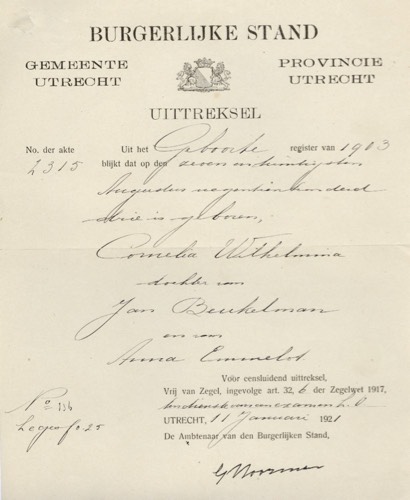 BURGERLIJKE STAND
GEMEENTE UTRECHT
PROVINCIE UTRECHT
UITTREKSEL
No. der akte Uit het Geboorte register van 1903
2315 blijkt dat op den zeven en twintigsten
Augustus negentienhonderd
drie is geboren,
Cornelia Wilhelmina
dochter van
Jan Beukelman
en van
Anna Emmelot
Voor eensluidend uittreksel,
Vrij van Zegel, ingevolge art. 32, 6 der Zegelwet 1917,
examen L.O.
UTRECHT, 11 Januari 1921
De Ambtenaar van den Burgerlijken Stand,
No 336
Leges f 0.25